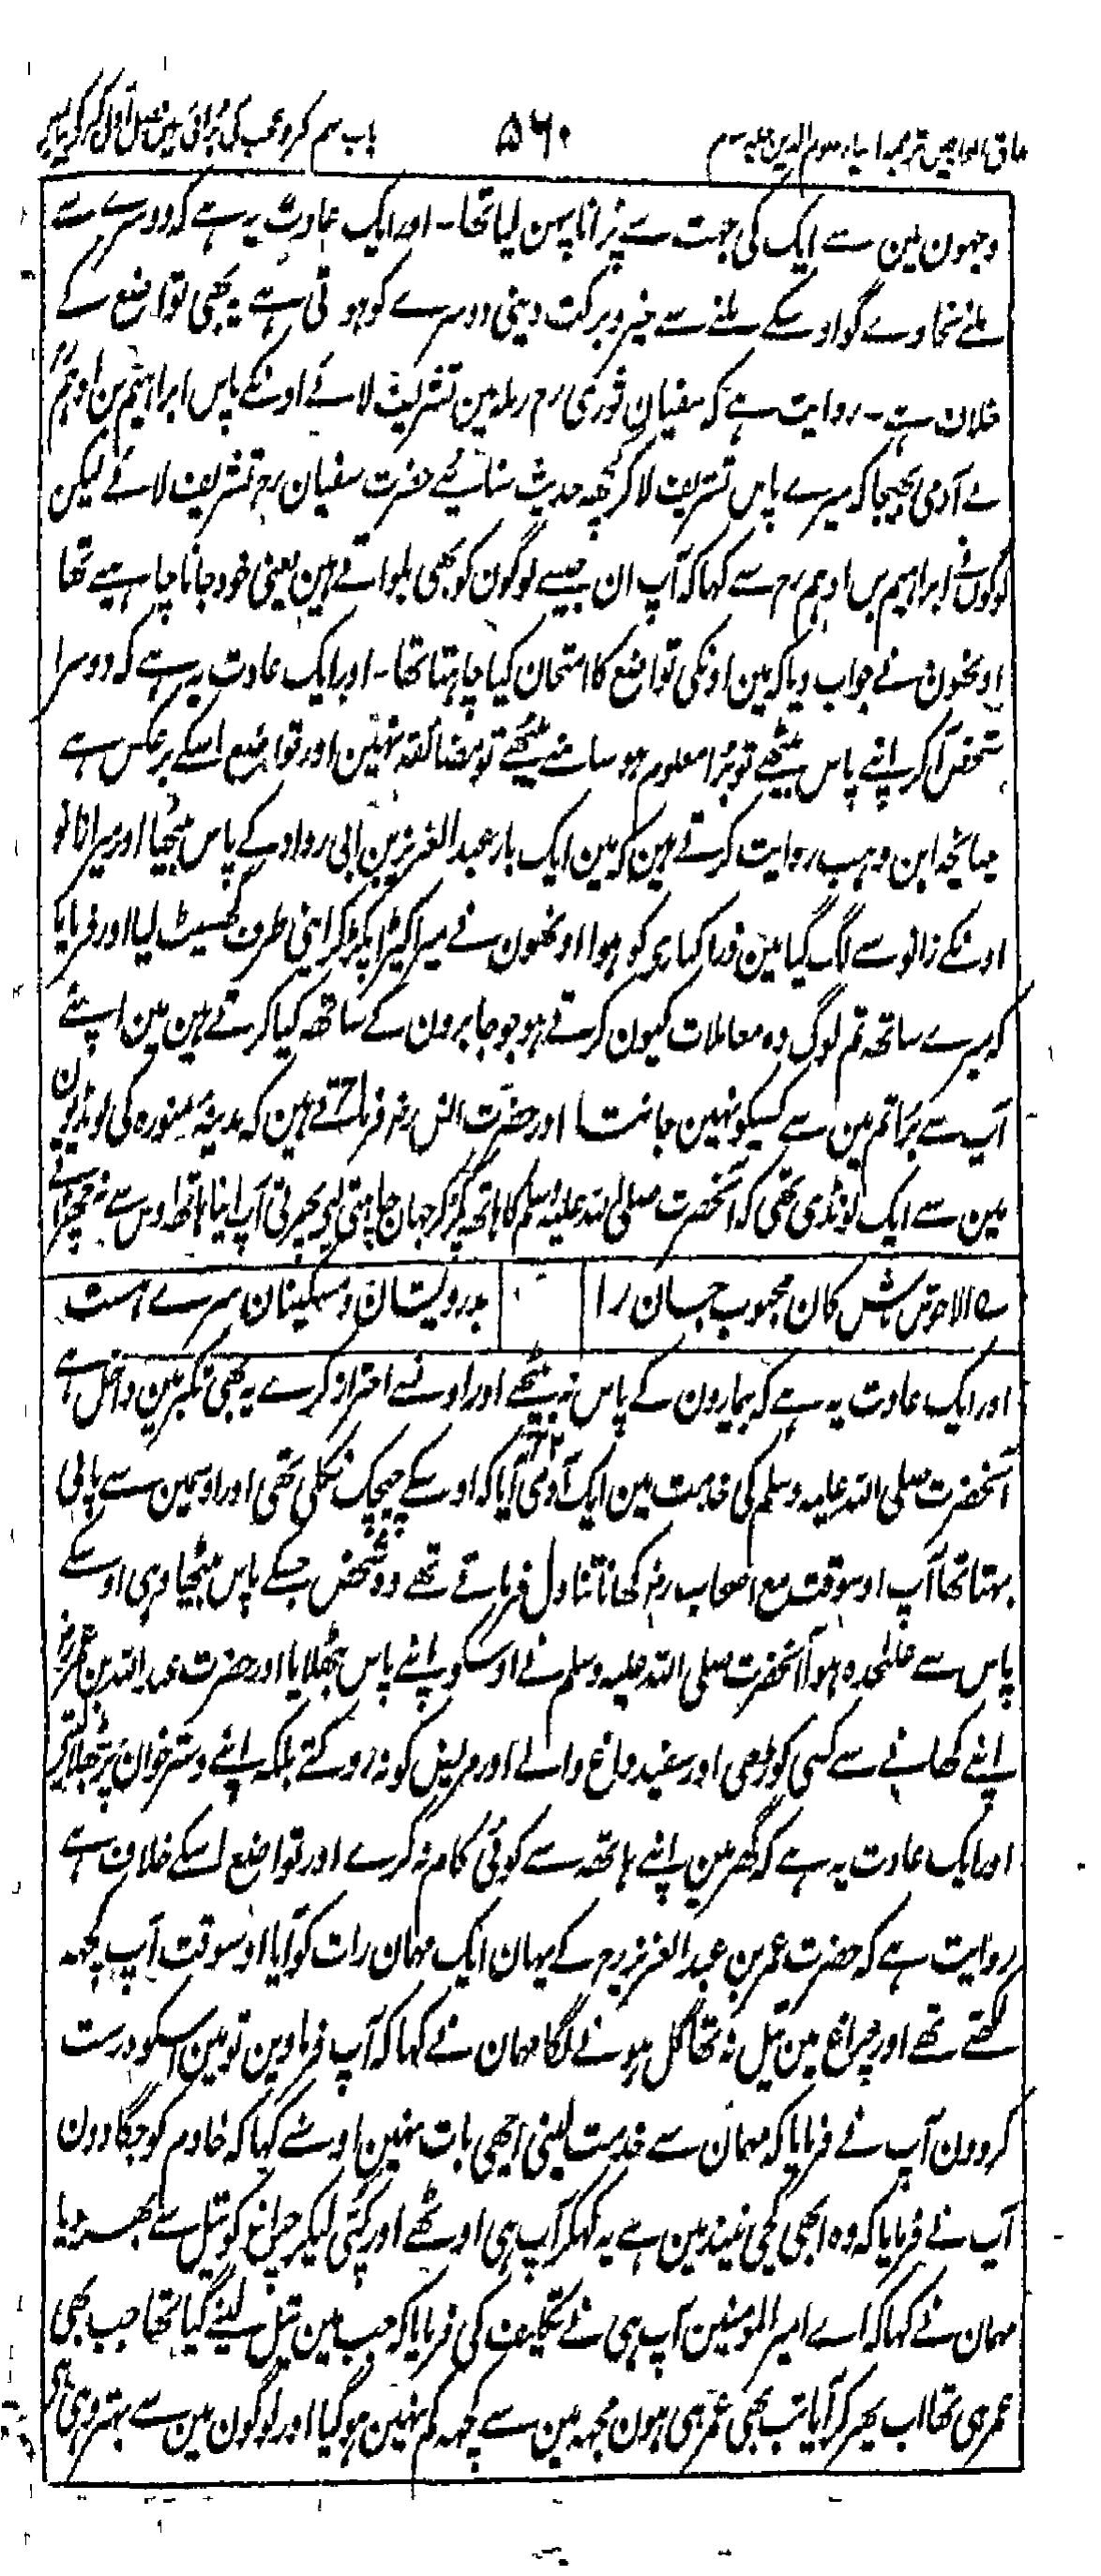 مذاق العارفین ترجمہ احیاء علوم الدین جلد سوم ۵۶۰ باب ہم کبر و عجب کی برائی میں فصل اول کبر کی
وجہون مین سے ایک کی جہت سے پرانا پہن لیا تھا۔ اور ایک عادت یہ ہے کہ دوسرے سے
ملنے نجاوے گو اوسکے ملنے سے خیر و برکت دینی دوسرے کو ہوتی ہے یہ بھی تواضع کے
خلاف ہے۔ روایت ہے کہ سفیان ثوری رح رملہ مین تشریف لائے اونکے پاس ابراہیم بن ادہم رح
نے آدمی بھیجا کہ میرے پاس تشریف لا کر کچھ حدیث سنائیے حضرت سفیان رح تشریف لائے لیکن
لوگون نے ابراہیم بن ادہم رح سے کہا کہ آپ ان جیسے لوگون کو بھی بلواتے ہین یعنی خود جانا چاہیے تھا
اونھون نے جواب دیا کہ مین اونکی تواضع کا امتحان کیا چاہتا تھا۔ اور ایک عادت یہ ہے کہ دوسرا
شخص آکر اپنے پاس بیٹھے تو برا معلوم ہو سامنے بیٹھے تو مضائقہ نہین اور تواضع اسکے برعکس ہے
چنانچہ ابن وہب روایت کرتے ہین کہ مین ایک بار عبد العزیز بن ابی رواد کے پاس بیٹھا اور میرا زانو
اونکے زانو سے لگ گیا مین ذرا کنارے کو ہوا اونھون نے میرا کپڑا پکڑ کر اپنی طرف گھسیٹ لیا اور فرمایا
کہ میرے ساتھ تم لوگ وہ معاملات کیون کرتے ہو جو جابرون کے ساتھ کیا کرتے ہین مین اپنے
آپ سے برا تم مین سے کسیکو نہین جانتا اور حضرت انس رضہ فرماتے ہین کہ مدینہ منورہ کی لونڈیون
مین سے ایک لونڈی تھی کہ آنحضرت صلی اللہ علیہ وسلم کا ہاتھ پکڑ کر جہان چاہتی لیے پھرتی آپ اپنا ہاتھ اوس سے نہ چھڑاتے
ے الا خوش باش کان محبوب جان را بدرویشان و مسکینان سرے است
اور ایک عادت یہ ہے کہ بیمارون کے پاس نہ بیٹھے اور اونسے احتراز کرے یہ بھی تکبر مین داخل ہے
آنحضرت صلی اللہ علیہ وسلم کی خدمت مین ایک آدمی آیا کہ اوسکے چیچک نکلی تھی اور اوسمین سے پانی
بہتا تھا آپ اوسوقت مع اصحاب رضہ کھانا تناول فرماتے تھے وہ شخص جسکے پاس بیٹھا وہی اوسکے
پاس سے علٰحدہ ہوا آنحضرت صلی اللہ علیہ وسلم نے اوسکو اپنے پاس بٹھلایا اور حضرت عبد اللہ بن عمر رضہ
اپنے کھانے سے کسی کوڑھی اور سفید داغ والے اور مریض کو نہ روکتے بلکہ اپنے دسترخوان پر بٹھلاتے
اور ایک عادت یہ ہے کہ گھر مین اپنے ہاتھ سے کوئی کام نہ کرے اور تواضع اسکے خلاف ہے
روایت ہے کہ حضرت عمر بن عبد العزیز رح کے یہان ایک مہمان رات کو آیا اوسوقت آپ کچھ
لکھتے تھے اور چراغ مین تیل نہ تھا گل ہونے لگا مہمان نے کہا کہ آپ فرماوین تو مین اسکو درست
کردون آپ نے فرمایا کہ مہمان سے خدمت لینی اچھی بات نہین اوسنے کہا کہ خادم کو جگا دون
آپ نے فرمایا کہ وہ ابھی کچی نیند مین ہے یہ کہکر آپ ہی اوٹھے اور کپی لیکر چراغ کو تیل سے بھر دیا
مہمان نے کہا کہ اے امیر المومنین آپ ہی نے تکلیف کی فرمایا کہ جب مین تیل لینے گیا تھا جب بھی
عمر ہی تھا اب پھر کر آیا تب بھی عمر ہی ہون مجھ مین سے کچھ کم نہین ہوگیا اور لوگون مین سے بہتر وہی ہے